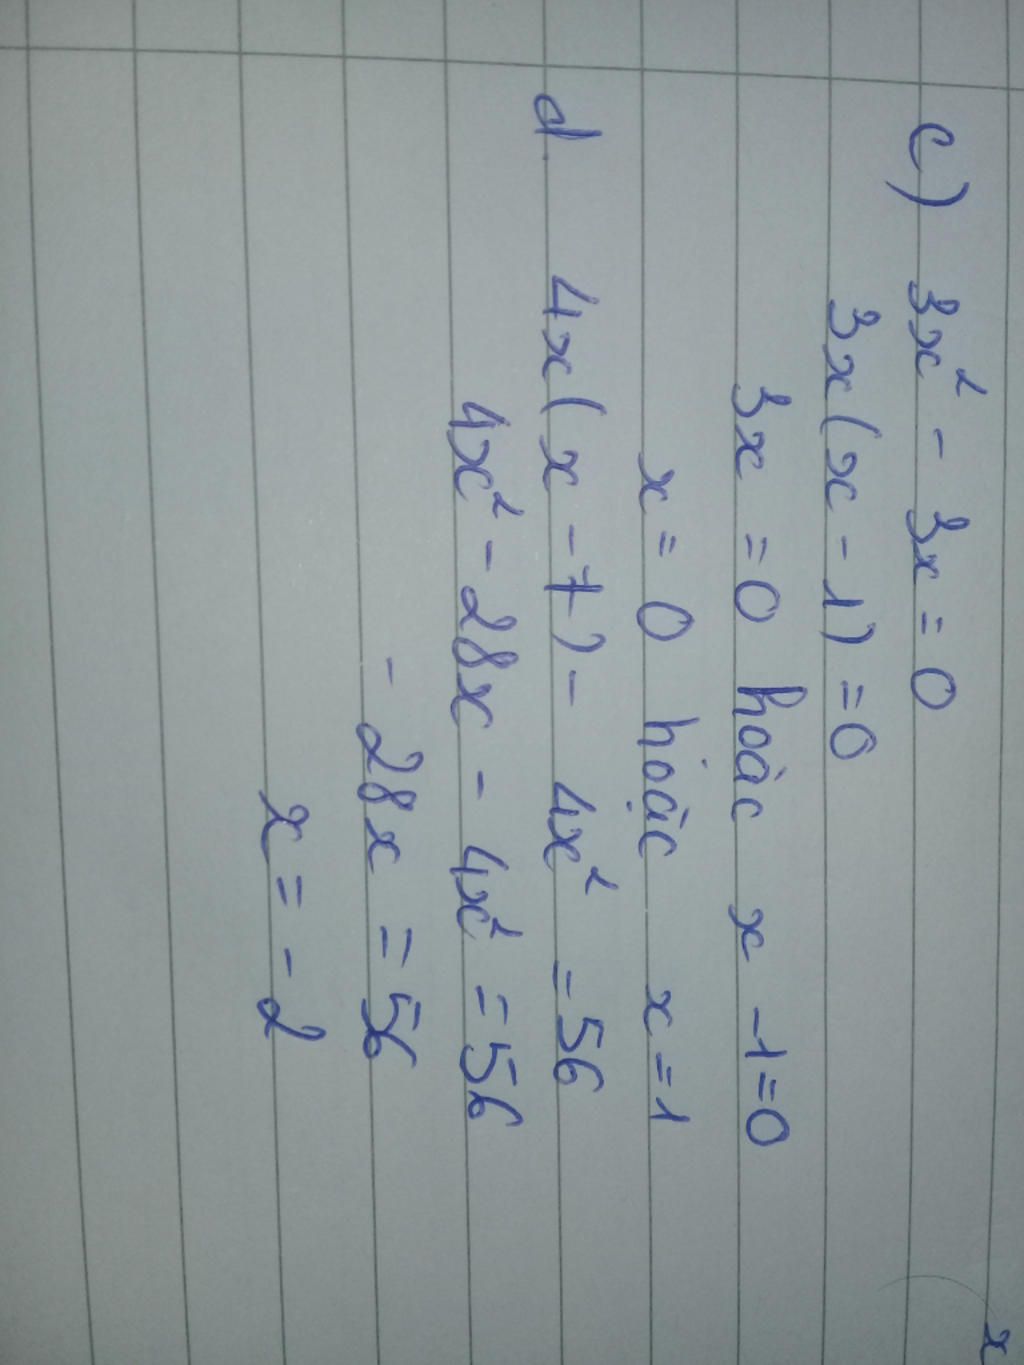 x
c) 3x² - 3x = 0
3x(x - 1) = 0
3x = 0 hoặc x - 1 = 0
x = 0 hoặc x = 1
d. 4x(x - 7) - 4x² = 56
4x² - 28x - 4x² = 56
- 28x = 56
x = - 2